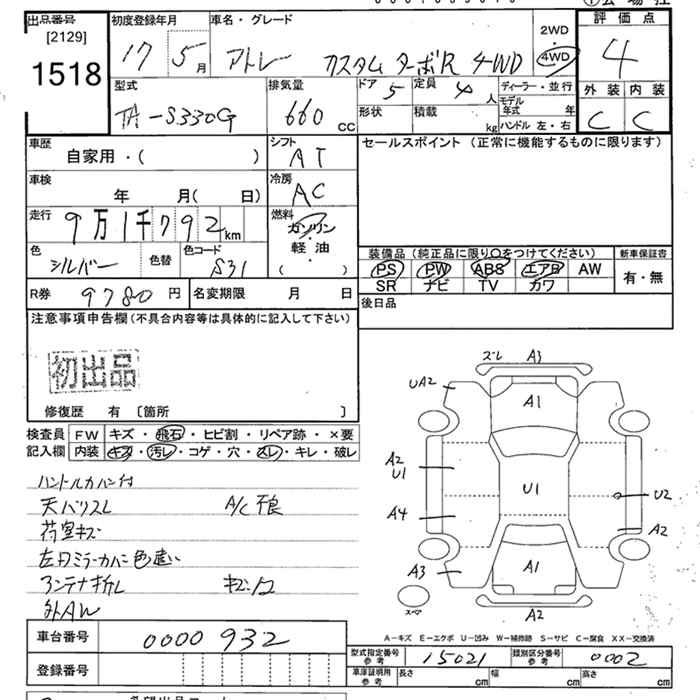 出品番号
[2129]
1518
初度登録年月
17 5月
車名・グレード
アトレー カスタム ターボR 4WD
2WD
・
4WD
評価点
4
外装 内装
C C
型式
TA-S330G
排気量
660 CC
ドア 5
定員 4 人
形状
積載 kg
ディーラー・並行
モデル年式 年
ハンドル 左・右
車歴
自家用・( )
シフト
AT
車検
年 月( 日)
冷房
AC
走行
9万1千792km
燃料
ガソリン
軽・油
( )
色
シルバー
色替
色コード
S31
R券 9780円
名変期限 月 日
セールスポイント(正常に機能するものに限ります)
装備品(純正品に限り○をつけてください)
PS PW ABS エアB AW
SR ナビ TV カワ
新車保証書
有・無
後日品
注意事項申告欄(不具合内容等は具体的に記入して下さい)
初出品
修復歴 有 〔箇所 〕
検査員記入欄
FW キズ・飛石・ヒビ割・リペア跡・×要
内装 キズ・汚レ・コゲ・穴・スレ・キレ・破レ
ハンドルカバー付
天バリスレ A/C不良
荷室キズ
左右ミラーカバー色違い
アンテナ折レ
外AW
ズレ A3
UA2
A1
A2
U1
U1
U2
A4
A2
A3
A1
A2
スペア
A-キズ E-エクボ U-凹み W-補修跡 S-サビ C-腐食 XX-交換済
車台番号 0000932
登録番号
型式指定番号 参考 15021
類別区分番号 参考 0002
車庫証明用 参考 長さ cm 幅 cm 高さ cm